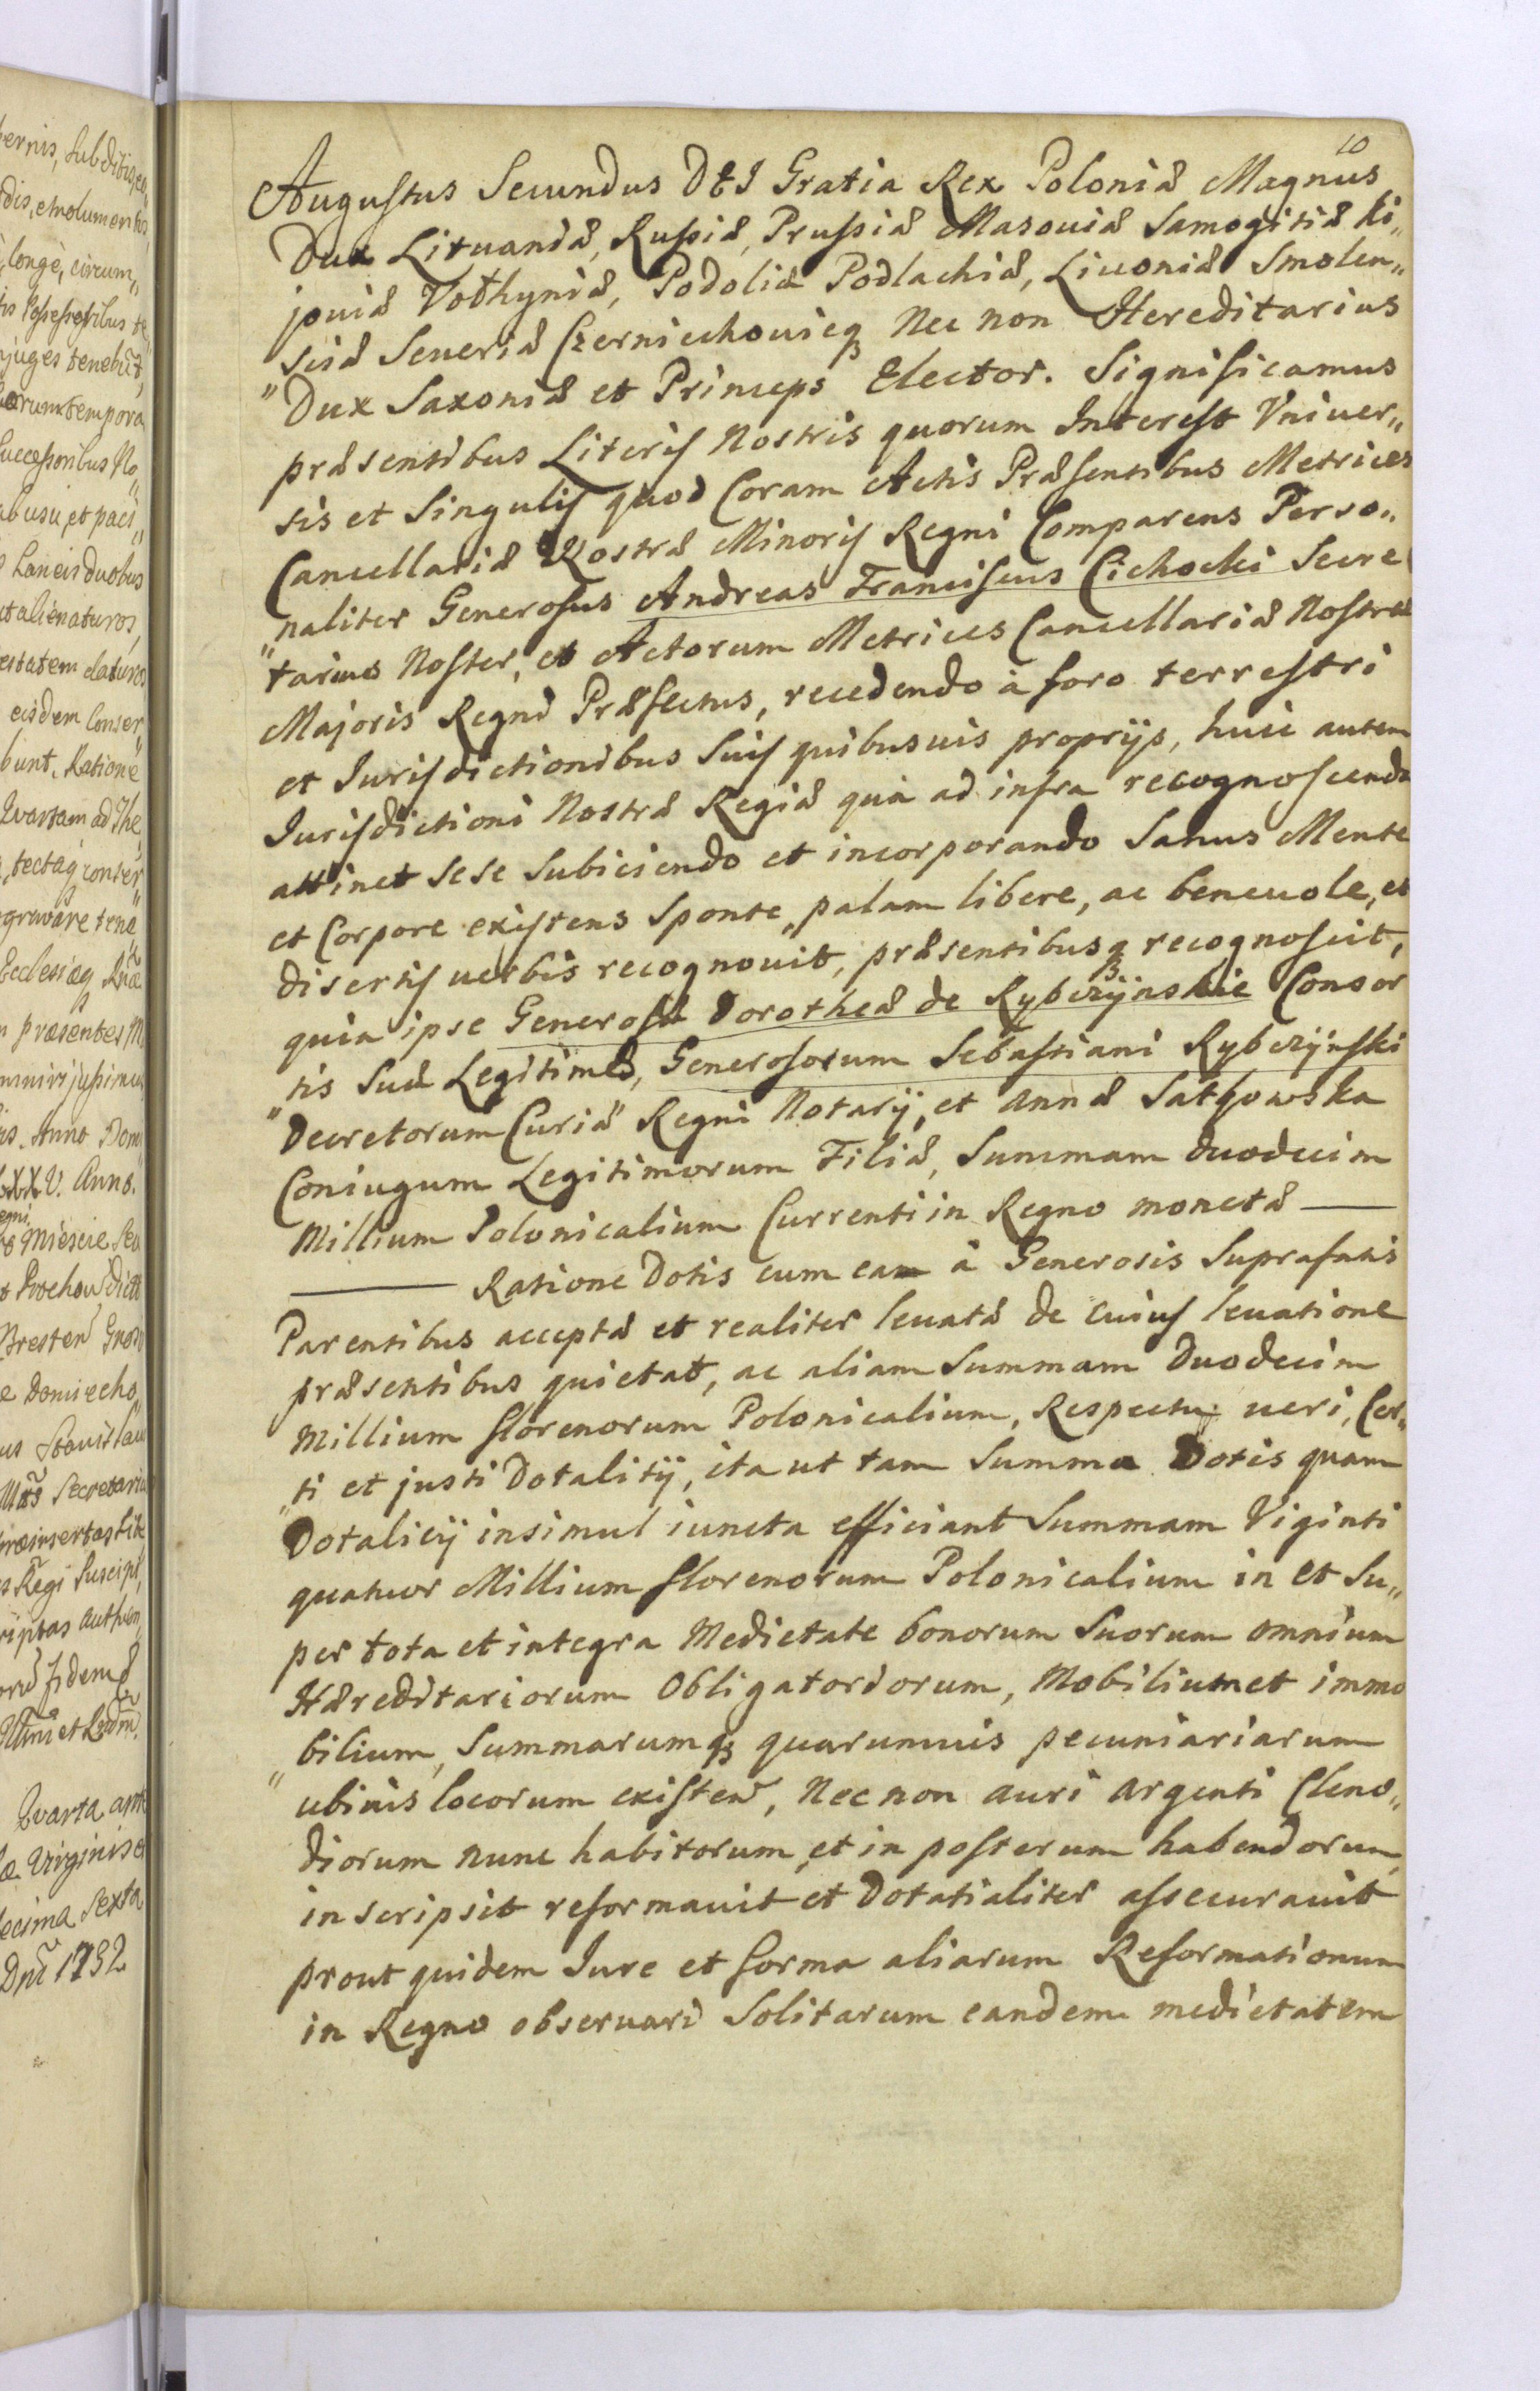 ernis, subditis
dis, emolumentis,
longè, circum„
tis Possessoribus
juges tenebũt,
tempora
uccessoribus No„
abusu, et paci„
Laneis duobus
t alienaturos,
estatem daturos
eisdem conser„
bunt. Ratione
Quartam ad The„
tectaq conser„
gravare
Ecclesiæq
præsentes M
jussimus
is. Anno Dom
XXV. Anno.
egni
Bresten
e Domiecho„
us Stanislaus
Secretarius
insertas Lite
Regi Suscipt,
riptas authen„
Fidemq
Quarta ante
æ Virginis
ecima Sexta
Dni 1732
10
Augustus Secundus DEI Gratia Rex Poloniæ Magnus
Dux Lituaniæ, Russiæ, Prussiæ Masouiæ Samogitiæ ki„
jouiæ Vołhyniæ, Podoliæ Podlachiæ, Liuoniæ Smolen„
sciæ Seueriæ Czerniechouieq Nec non Hereditarius
„Dux Saxoniæ et Princeps Elector. Significamus
præsentibus Literis Nostris quorum Interest Vniuer„
sis et Singulis quod Coram Actis Præsentibus Metrices
Cancellariæ Nostræ Minoris Regni Comparens Perso„
„naliter Generosus Andreas Franciscus Cichocki Secre
„tarius Noster, et Actorum Metrices Cancellariæ Nostræ
Majoris Regni Præfectus, recedendo à foro terrestri
et Iurisdictionibus Suis quibusuis proprijs, huic autem
Iurisdictioni Nostræ Regiæ quà ad infra recognoscenda
attinet sese Subiciendo et incorporando Sanus Mente
et Corpore existens Sponte, palam libere, ac beneuole, et
disertis uerbis recognouit, præsentibusq recognoscit,
quia ipse Generosæ Dorotheæ de Rybczÿnskie Consor
„tis Suæ Legitimæ, Generosorum Sebastiani Rybczÿnski
Decretorum Curiæ Regni Notarij, et Annæ Satkowska
Coniugum Legitimorum Filiæ, Summam duodecim
Millium Polonicalium Currenti in Regno monetæ —
— Ratione Dotis cum ea à Generosis Suprafatis
Parentibus acceptæ et realiter leuatæ de cuius leuatione
præsentibus quietat, ac aliam Summam Duodecim
Millium florenorum Polonicalium, Respectu ueri, Cer„
„ti et justi Dotalitij, ita ut tam Summa Dotis quam
Dotalicij insimul iuncta efficiant Summam Viginti
quatuor Millium florenorum Polonicalium in et Su„
per tota et integra Medietate bonorum Suorum omnium
Hæreditariorum Obligatoriorum, Mobilium et immo
„bilium, Summarumq quarumuis pecuniariarum
ubiuis locorum existen, Nec non auri Argenti Cleno„
diorum nunc habitorum, et in posterum habendorum,
inscripsit reformauit et Dotatialiter assecurauit
prout quidem Iure et forma aliarum Reformationum
in Regno obseruari Solitarum eandem medietatem